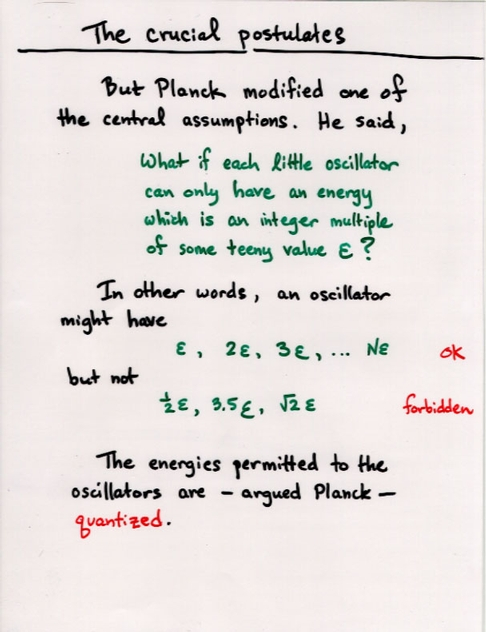 The crucial postulates
But Planck modified one of
the central assumptions. He said,
What if each little oscillator
can only have an energy
which is an integer multiple
of some teeny value ε?
In other words, an oscillator
might have
ε, 2ε, 3ε, ... Nε ok
but not
½ε, 3.5ε, √2 ε forbidden
The energies permitted to the
oscillators are - argued Planck -
quantized.